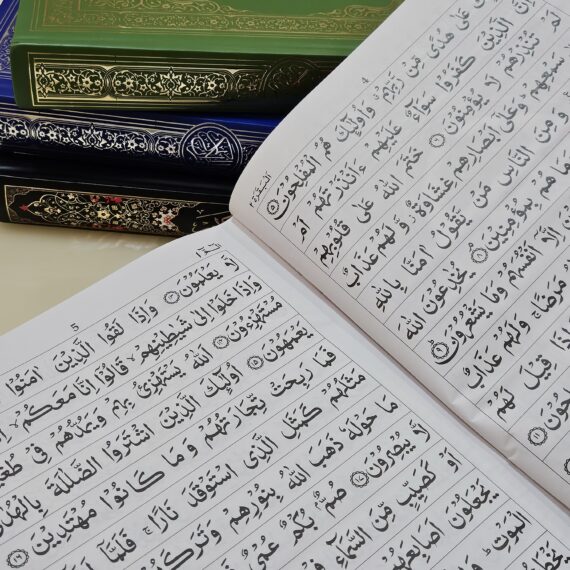 4
البقرة ٢
عَلَىٰ هُدًى مِّن رَّبِّهِمْ وَأُولَٰئِكَ هُمُ الْمُفْلِحُونَ ٥
إِنَّ الَّذِينَ كَفَرُوا سَوَاءٌ عَلَيْهِمْ ءَأَنذَرْتَهُمْ أَمْ
تُنذِرْهُمْ لَا يُؤْمِنُونَ ٦ خَتَمَ اللَّهُ عَلَىٰ قُلُوبِهِمْ
سَمْعِهِمْ وَعَلَىٰ أَبْصَارِهِمْ غِشَاوَةٌ وَلَهُمْ عَذَابٌ
وَمِنَ النَّاسِ مَن يَقُولُ ءَامَنَّا بِاللَّهِ
هُم بِمُؤْمِنِينَ ٨ يُخَادِعُونَ اللَّهَ
إِلَّا أَنفُسَهُمْ وَمَا يَشْعُرُونَ ٩
مَرَضًا وَلَهُمْ عَذَابٌ
قِيلَ لَهُمْ
١١
5
لَّا يَعْلَمُونَ ١٣ وَإِذَا لَقُوا الَّذِينَ ءَامَنُوا
وَإِذَا خَلَوْا إِلَىٰ شَيَاطِينِهِمْ قَالُوا إِنَّا مَعَكُمْ
مُسْتَهْزِءُونَ ١٤ اللَّهُ يَسْتَهْزِئُ بِهِمْ وَيَمُدُّهُمْ فِي
يَعْمَهُونَ ١٥ أُولَٰئِكَ الَّذِينَ اشْتَرَوُا الضَّلَالَةَ
فَمَا رَبِحَت تِّجَارَتُهُمْ وَمَا كَانُوا مُهْتَدِينَ ١٦
مَثَلُهُمْ كَمَثَلِ الَّذِي اسْتَوْقَدَ نَارًا فَلَمَّا
مَا حَوْلَهُ ذَهَبَ اللَّهُ بِنُورِهِمْ وَتَرَكَهُمْ
لَّا يُبْصِرُونَ ١٧ صُمٌّ بُكْمٌ عُمْيٌ
أَوْ كَصَيِّبٍ مِّنَ السَّمَاءِ
يَجْعَلُونَ أَصَابِعَهُمْ
الْمَوْتِ